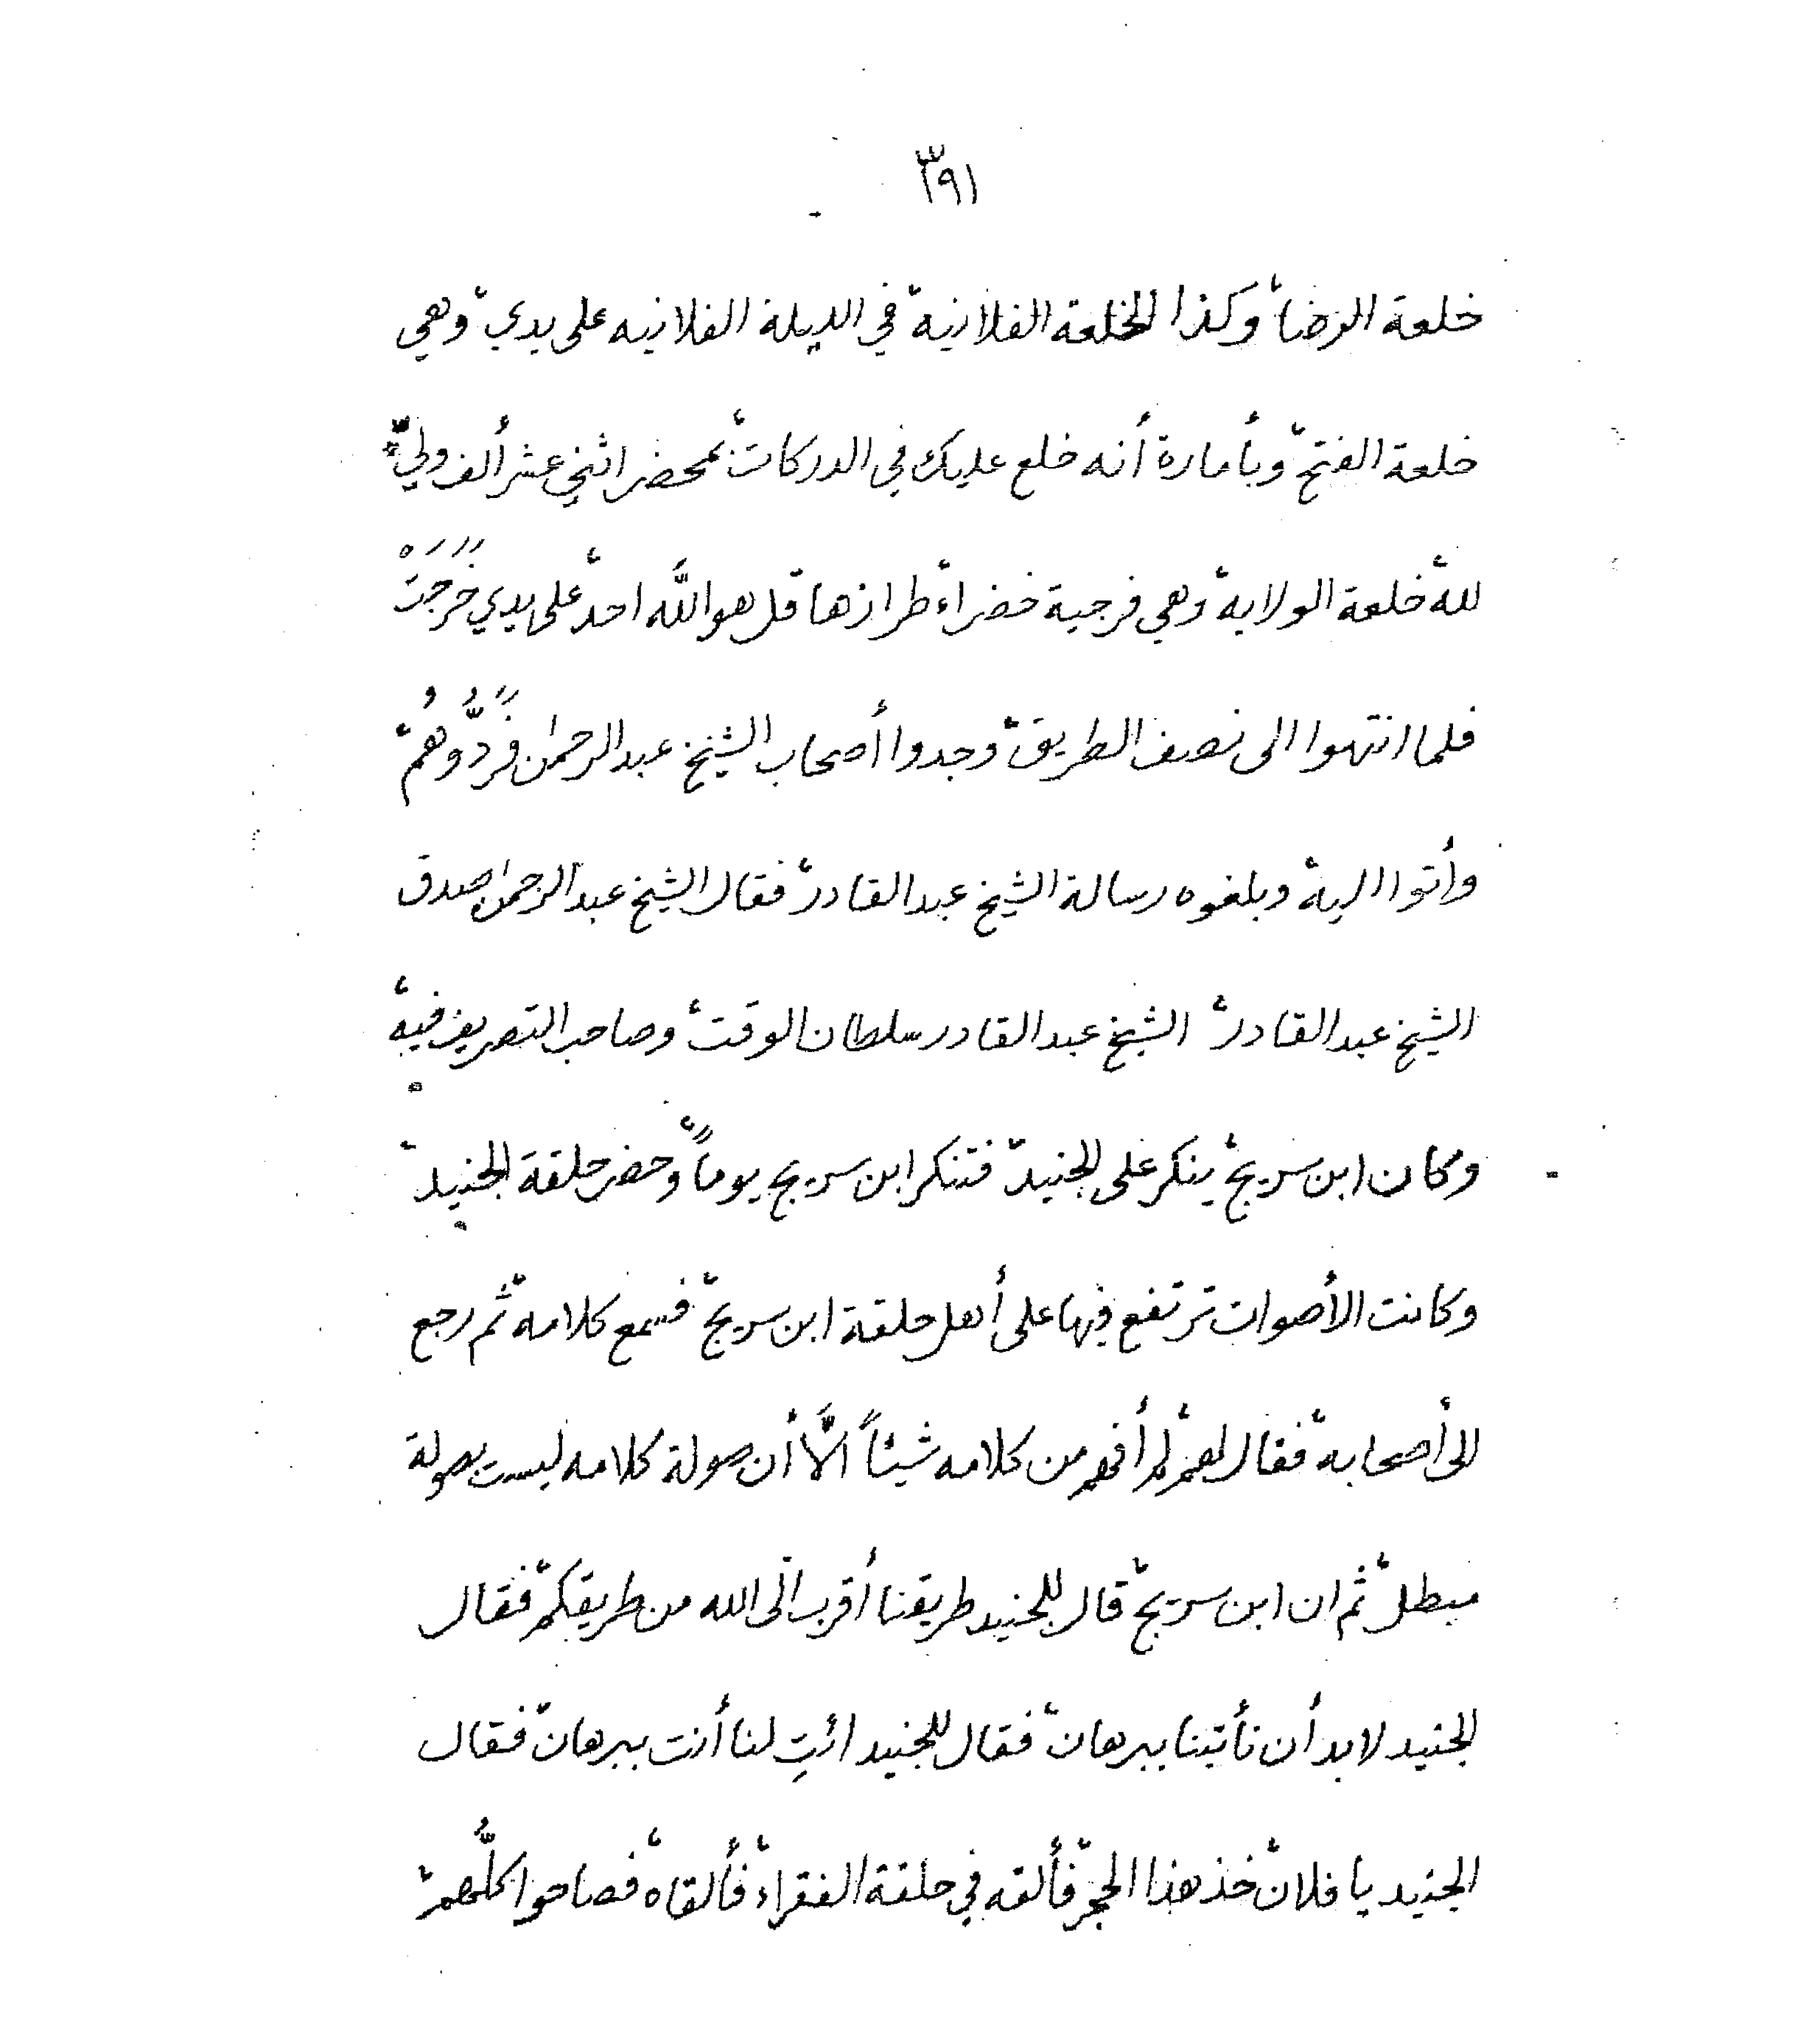 ٣٩١
خلعة الرضا، وكذا الخلعة الفلانية، في الليلة الفلانيه على يدي، وهي
خلعة الفتح، وبأمارة أنه خلع عليك في الدركات، بمحضر اثني عشر ألف ولي،
لله، خلعة الولاية، وهي فرجية خضراء، طرازها قل هو الله احد، على يدي خرجت
فلما انتهوا الى نصف الطريق، وجدوا أصحاب الشيخ عبد الرحمن فردُّوهُم،
وأتوا اليه، وبلغوه رسالة الشيخ عبد القادر، فقال الشيخ عبد الرحمن صدق
الشيخ عبد القادر، الشيخ عبد القادر سلطان الوقت، وصاحب التصريف فيه،
وكان ابن سريج، ينكر على الجنيد، فتنكر ابن سريج يوماً، وحضر حلقة الجنيد،
وكانت الأصوات ترتفع فيها على أهل حلقة ابن سريج، فسمع كلامه، ثم رجع
الى أصحابه، فقال لهم، لم أفهم من كلامه شيئاً الَّا أن صولة كلامه ليست بصولة
مبطل، ثم ان ابن سريج، قال للجنيد طريقنا أقرب الى الله من طريقكم، فقال
الجنيد لابد أن تأتينا ببرهان، فقال للجنيد ائتِ لنا أنت ببرهان، فقال
الجنيد يا فلان، خذ هذا الحجر، فألقه في حلقة الفقراء، فألقاه، فصاحوا كلُّهم،